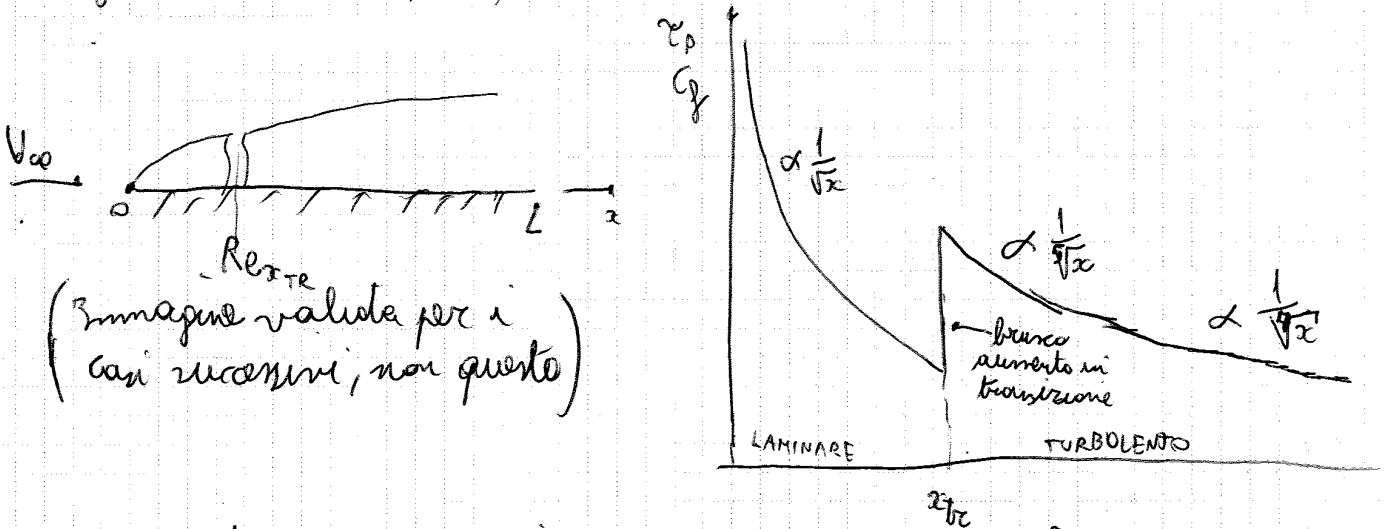 V∞
0
L
x
Re x_TR
(Immagine valida per i
casi successivi, non questo)
τ_p
C_f
∝ 1/√x
∝ 1/⁵√x
∝ 1/⁷√x
brusco
aumento in
transizione
LAMINARE
TURBOLENTO
x_tr